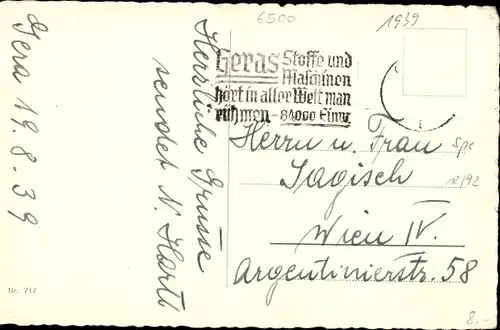 6500
1939
Gera 19.8.39
Herzliche Grüsse
sendet N. Hartl
Geras Stoffe und
Maschinen
hört in aller Welt man
rühmen - 84000 Einw.
Herrn u. Frau
Jagisch
Wien IV.
Argentinierstr. 58
Nr. 717
8.-